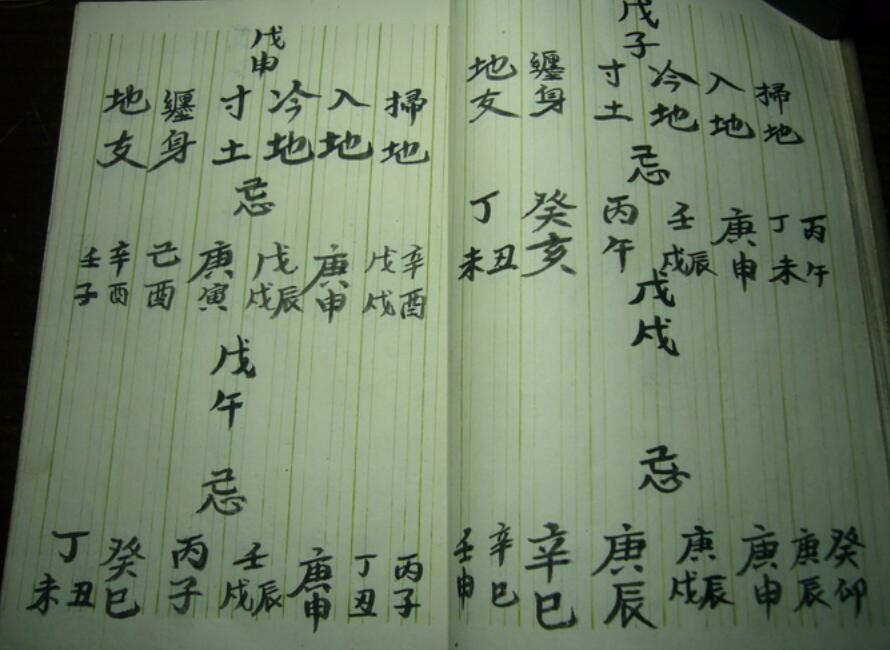 戊子
掃地
入地
冷地
寸土
纏身
地支
忌
丙午
丁未
庚申
壬辰戌
丙午
癸亥
丁丑未
戊戌
忌
癸卯
庚辰
庚申
庚辰戌
庚辰
辛巳
辛巳
壬申
戊申
掃地
入地
冷地
寸土
纏身
地支
忌
辛酉
戊戌
庚申
戊辰戌
庚寅
己酉
辛酉
壬子
戊午
忌
丙子
丁丑
庚申
壬辰戌
丙子
癸巳
丁丑未